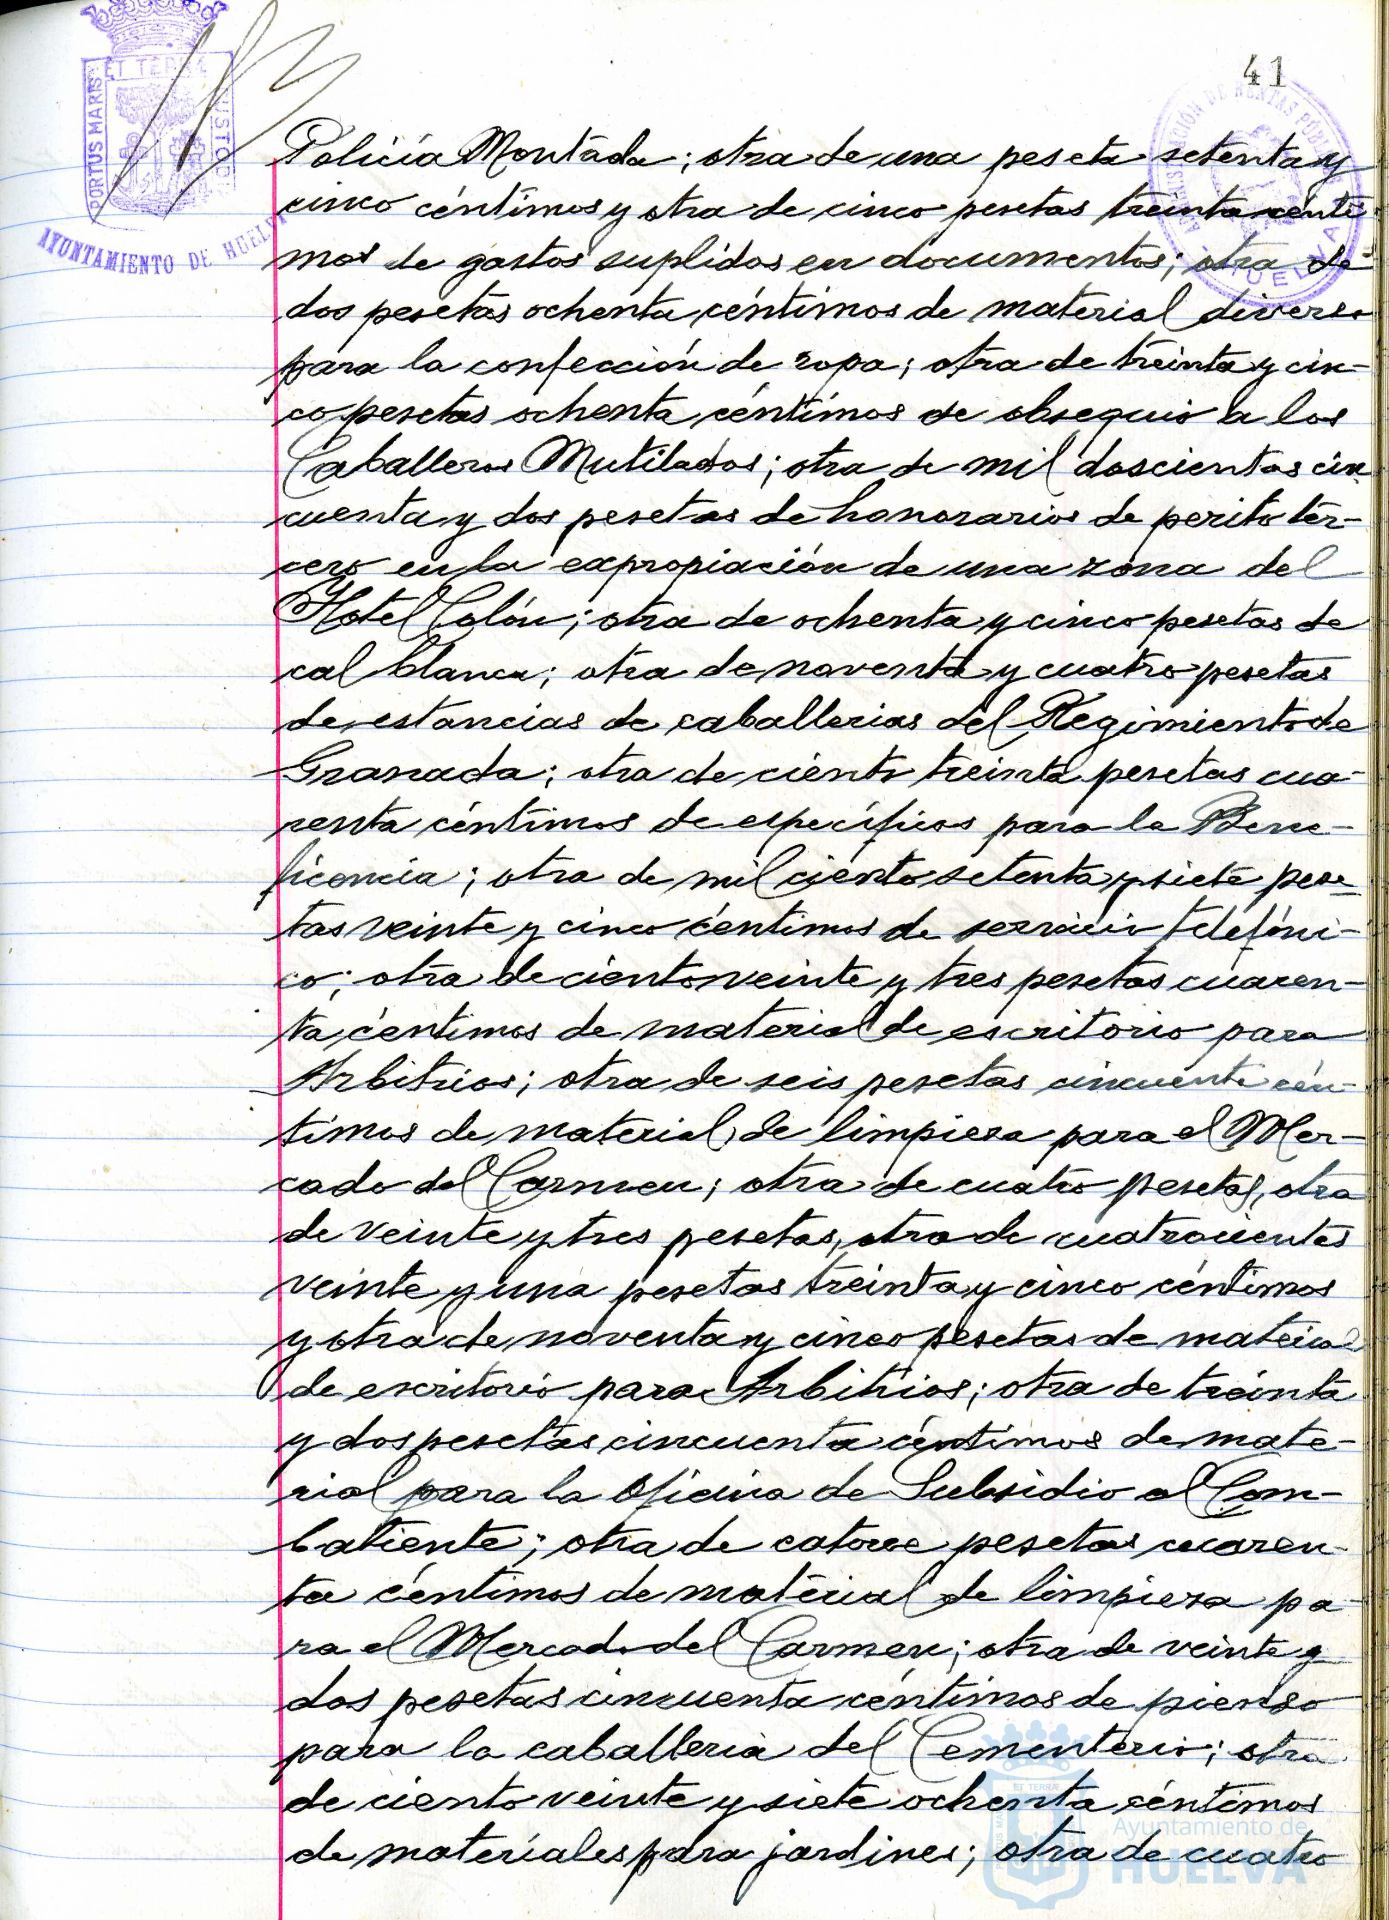 41
ET TERRÆ
PORTUS MARIS
CUSTODIA
AYUNTAMIENTO DE HUELVA
ADMINISTRACIÓN DE RENTAS PÚBLICAS
HUELVA
Policía Montada; otra de una peseta setenta y
cinco céntimos y otra de cinco pesetas treinta cénti-
mos de gastos suplidos en documentos; otra de
dos pesetas ochenta céntimos de material diverso
para la confección de ropa; otra de treinta y cin-
co pesetas ochenta céntimos de obsequio a los
Caballeros Mutilados; otra de mil doscientas cin
cuenta y dos pesetas de honorarios de perito ter-
cero en la expropiación de una zona del
Hotel Colón; otra de ochenta y cinco pesetas de
cal blanca; otra de noventa y cuatro pesetas
de estancias de caballerias del Regimiento de
Granada; otra de ciento treinta pesetas cua-
renta céntimos de específicos para la Bene-
ficencia; otra de mil ciento setenta y siete pese
tas veinte y cinco céntimos de servicio telefóni-
co; otra de ciento veinte y tres pesetas cuaren-
ta céntimos de material de escritorio para
Arbitrios; otra de seis pesetas cincuenta cén-
timos de material de limpieza para el Mer-
cado del Carmen; otra de cuatro pesetas, otra
de veinte y tres pesetas, otra de cuatrocientas
veinte y una pesetas treinta y cinco céntimos
y otra de noventa y cinco pesetas de material
de escritorio para Arbitrios; otra de treinta
y dos pesetas cincuenta céntimos de mate-
rial para la Oficina de Subsidio al Com-
batiente; otra de catorce pesetas cuaren-
ta céntimos de material de limpieza pa-
ra el Mercado del Carmen; otra de veinte y
dos pesetas cincuenta céntimos de pienso
para la caballeria del Cementerio; otra
de ciento veinte y siete ochenta céntimos
de materiales para jardines; otra de cuatro
Ayuntamiento de
HUELVA